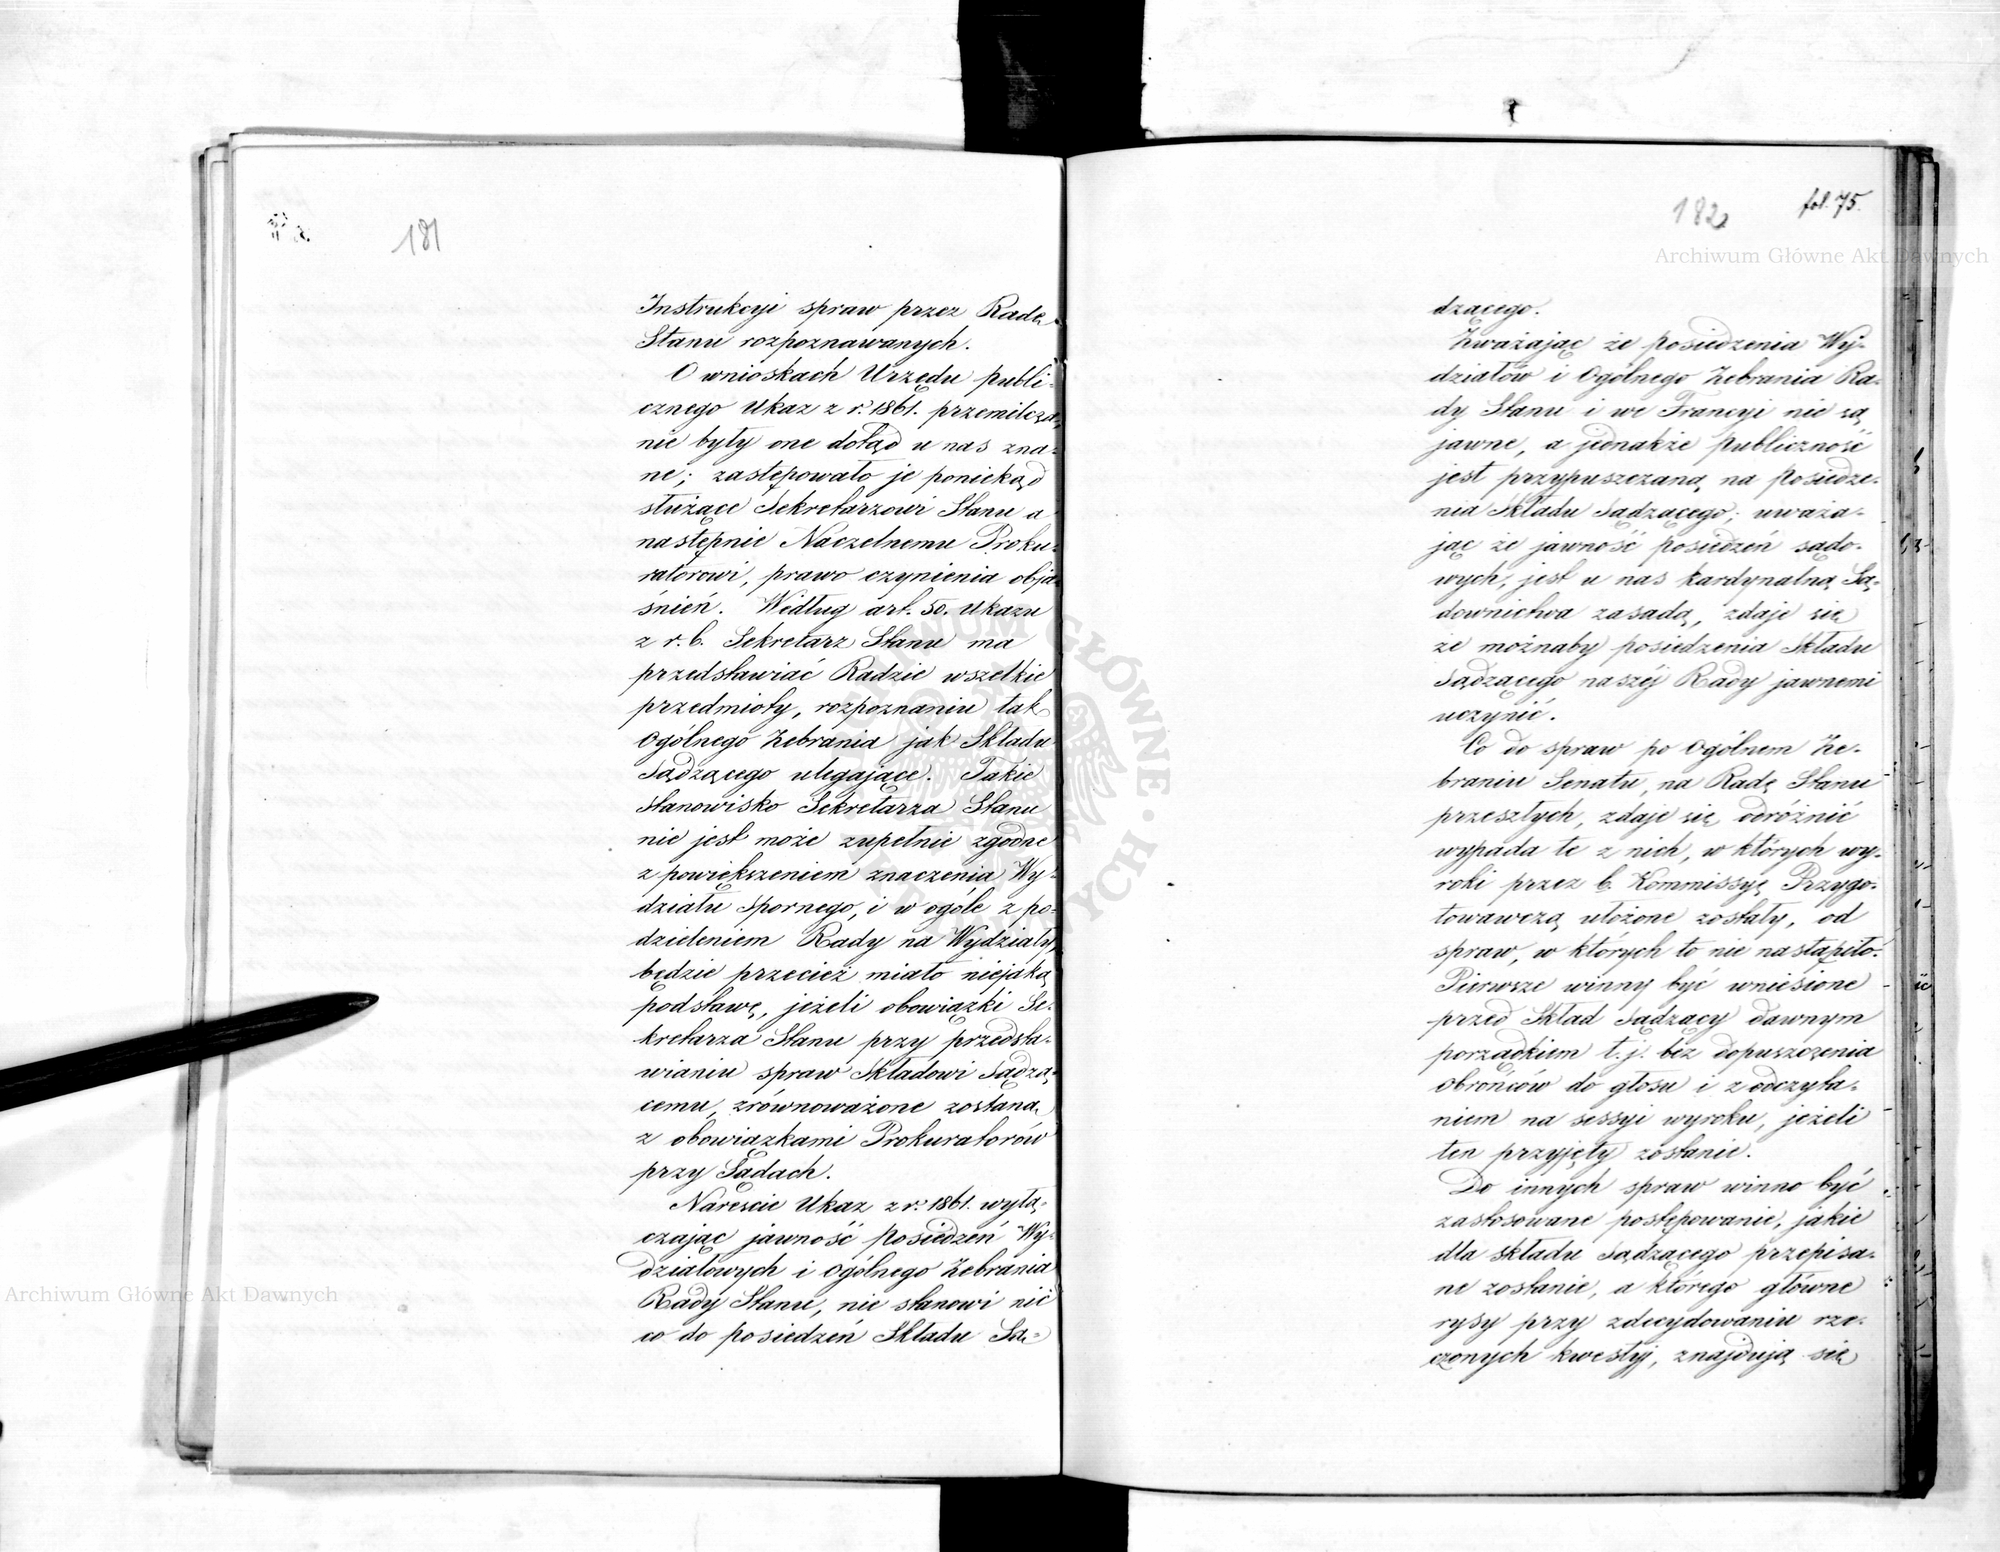 181
Instrukcyi spraw przez Radę
Stanu rozpoznawanych.
O wnioskach Urzędu publi-
cznego Ukaz z r. 1861. przemilcza,
nie były one dotąd u nas zna-
ne; zastępowało je poniekąd
służące Sekretarzowi Stanu a
następnie Naczelnemu Proku-
ratorowi, prawo czynienia obja-
śnień. Według art. 50. Ukazu
z r. b. Sekretarz Stanu ma
przedstawiać Radzie wszelkie
przedmioty, rozpoznaniu tak
Ogólnego Zebrania jak Składu
Sądzącego ulegające. Takie
stanowisko Sekretarza Stanu
nie jest może zupełnie zgodne
z powiększeniem znaczenia Wy-
działu Spornego, i w ogóle z po-
dzieleniem Rady na Wydziały,
będzie przecież miało niejaką
podstawę, jeżeli obowiązki Se-
kretarza Stanu przy przedsta-
wianiu spraw Składowi Sądzą-
cemu, zrównoważone zostaną,
z obowiązkami Prokuratorów
przy Sądach.
Nareście Ukaz z r. 1861. wyłą-
czając jawność Posiedzeń Wy-
działowych i Ogólnego Zebrania
Rady Stanu, nie stanowi nic
co do posiedzeń Składu Są-
182 fol. 75.
dzącego.
Zważając że posiedzenia Wy-
działów i Ogólnego Zebrania Ra-
dy Stanu i we Francyi nie są
jawne, a jednakże publiczność
jest przypuszczaną na Posiedze-
nia Składu Sądzącego; uważa-
jąc że jawność posiedzeń sądo-
wych, jest u nas kardynalną Są-
downictwa zasadą, zdaje się
że możnaby posiedzenia Składu
Sądzącego naszéj Rady jawnemi
uczynić.
Co do spraw po Ogólnem Ze-
braniu Senatu, na Radę Stanu
przeszłych, zdaje się odróżnić
wypada te z nich, w których wy-
roki przez b. Kommissyę Przygo-
towawczą ułożone zostały, od
spraw, w których to nie nastąpiło.
Pierwsze winny być wniesione
przed Skład Sądzący dawnym
porządkiem t. j. bez dopuszczenia
obrońców do głosu i z odczyta-
niem na sessyi wyroku, jeżeli
ten przyjęty zostanie.
Do innych spraw winno być
zastosowane postępowanie, jakie
dla składu Sądzącego przepisa-
ne zostanie, a którego główne
rysy przy zdecydowaniu rze-
czonych kwestyj, znajdują się
Archiwum Główne Akt Dawnych
Archiwum Główne Akt Dawnych